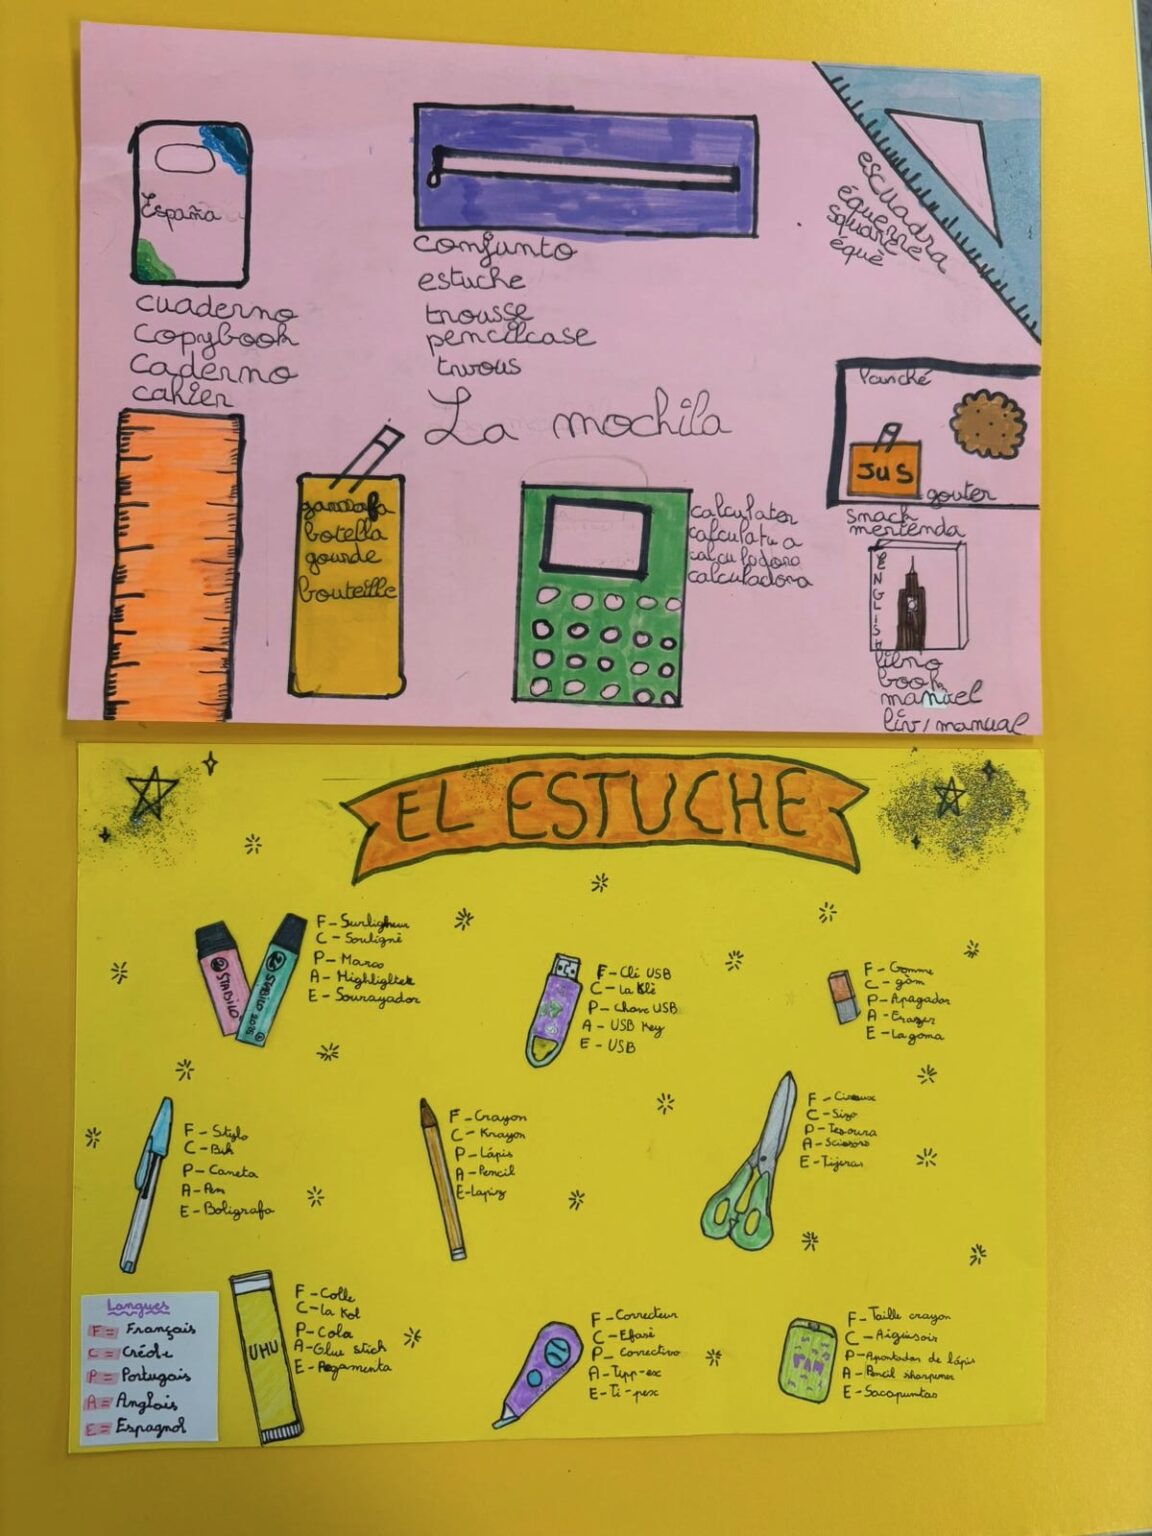 España
cuaderno
copybook
caderno
cahier
conjunto
estuche
trousse
pencilcase
trous
escuadra
équerrera
square
équè
La mochila
Lanché
JUS
gouter
snack
merienda
botella
gourde
bouteille
calculator
calculadora
calculadora
ENGLISH
libro
book
manuel
liv/manual
EL ESTUCHE
STABILO
STABILO
F - Surligneur
C - Souligné
P - Marca
A - Highlighter
E - Sourayador
F - Clé USB
C - la klé
P - Chave USB
A - USB Key
E - USB
F - Gomme
C - gòm
P - Apagador
A - Erazer
E - La goma
F - Stylo
C - Bik
P - Caneta
A - Pen
E - Boligrafo
F - Crayon
C - Krayon
P - Lápis
A - Pencil
E - Lapiz
F - Ciseaux
C - Sizo
P - Tesoura
A - Scissors
E - Tijeras
UHU
F - Colle
C - la kol
P - Cola
A - Glue stick
E - Pegamenta
F - Correcteur
C - Efasè
P - Correctivo
A - Tipp-ex
E - Ti-pex
F - Taille crayon
C - Aigiusois
P - Apontador de lápis
A - Pencil sharpener
E - Sacapuntas
Langues
F = Français
C = Créole
P = Portugais
A = Anglais
E = Espagnol